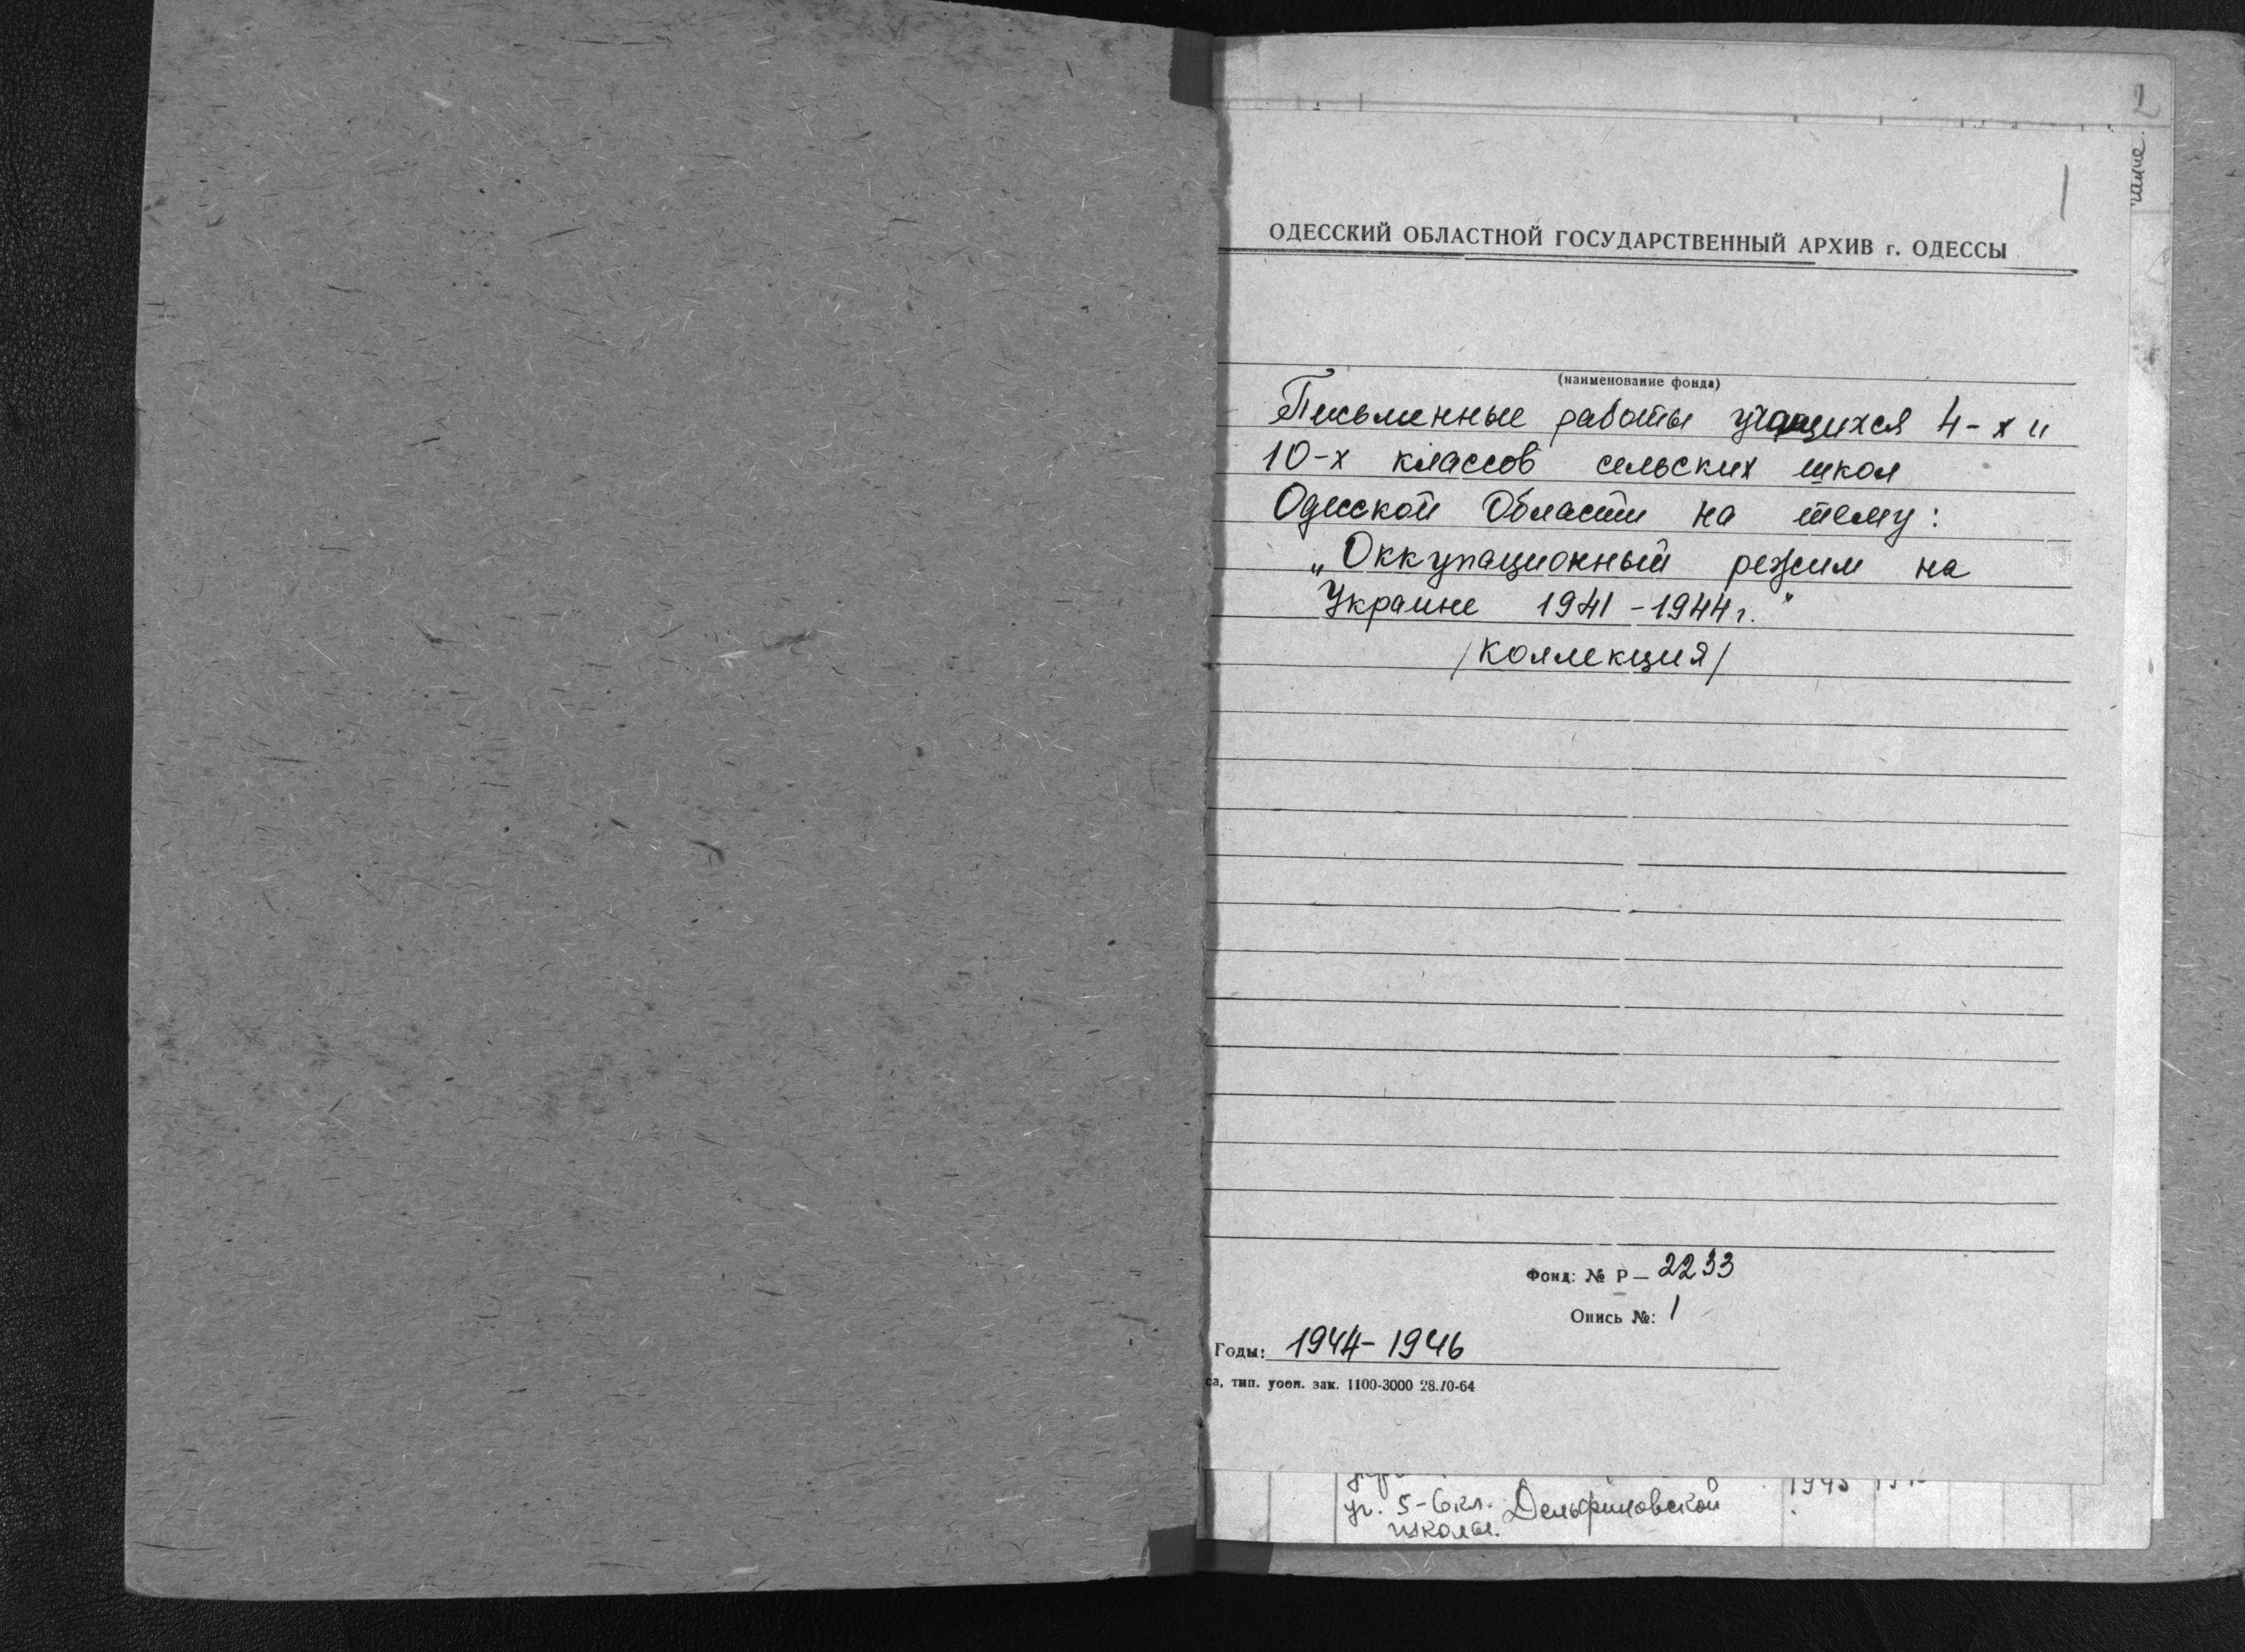 2
1
ОДЕССКИЙ ОБЛАСТНОЙ ГОСУДАРСТВЕННЫЙ АРХИВ г. ОДЕССЫ
(наименование фонда)
Письменные работы учащихся 4-х и
10-х классов сельских школ
Одесской Области на тему:
„Оккупационный режим на
Украине 1941-1944 г."
/коллекция/
Фонд: № Р — 2233
Опись №: 1
Годы: 1944-1946
са, тип. уооп. зак. 1100-3000 28.10-64
1945
уч. 5-6 кл. Дельфиновской
школы.